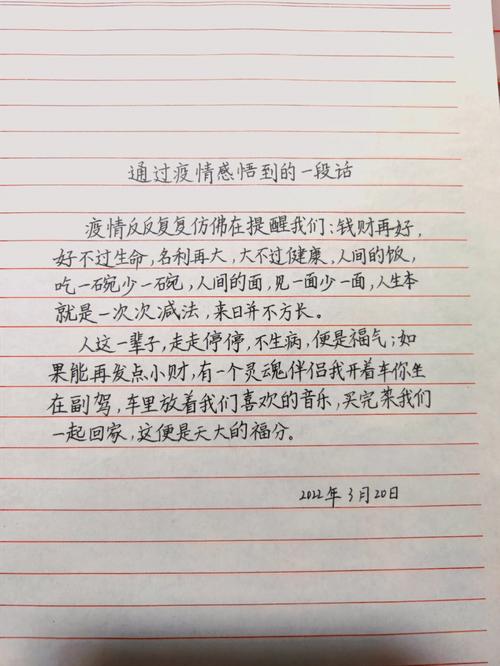 通过疫情感悟到的一段话
疫情反反复复仿佛在提醒我们:钱财再好,
好不过生命,名利再大,大不过健康,人间的饭,
吃一碗少一碗,人间的面,见一面少一面,人生本
就是一次次减法,来日并不方长。
人这一辈子,走走停停,不生病,便是福气;如
果能再发点小财,有一个灵魂伴侣我开着车你坐
在副驾,车里放着我们喜欢的音乐,买完菜我们
一起回家,这便是天大的福分。
2022年3月20日